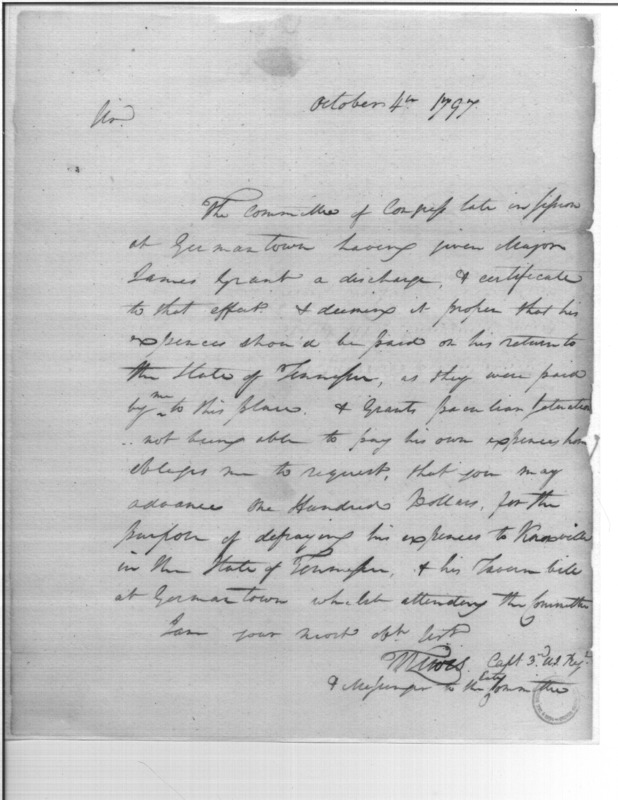 October 4th 1797.
Sir
The Committee of Congress late in session
at Germantown having given Major
James Grant a discharge, & certificate
to that effect. & deeming it proper that his
expences should be paid on his return to
the State of Tennessee, as they were paid
by me to this place. & Grants peculiar situation
not being able to pay his own expences home
obliges me to request, that you may
advance One Hundred Dollars, for the
purpose of defraying his expences to Knoxville
in the State of Tennessee, & his Tavern bill
at Germantown whilst attending the Committee
I am your most obt. Sert.
Lewis. Capt 3rd US Regt.
& Messenger to the Committee